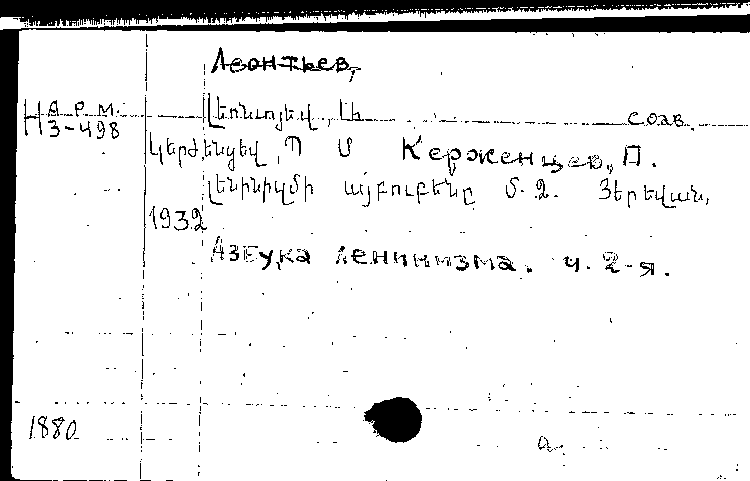 Леонтьев,
Н арм. 3-498
Լեոնտյեվ, Լի соав.
Կերժենցեվ, Պ Մ Керженцев, П.
Լենինիզմի այբուբենը Մ. 2. Յերեվան,
1932
Азбука ленинизма. ч. 2-я.
1880
а.